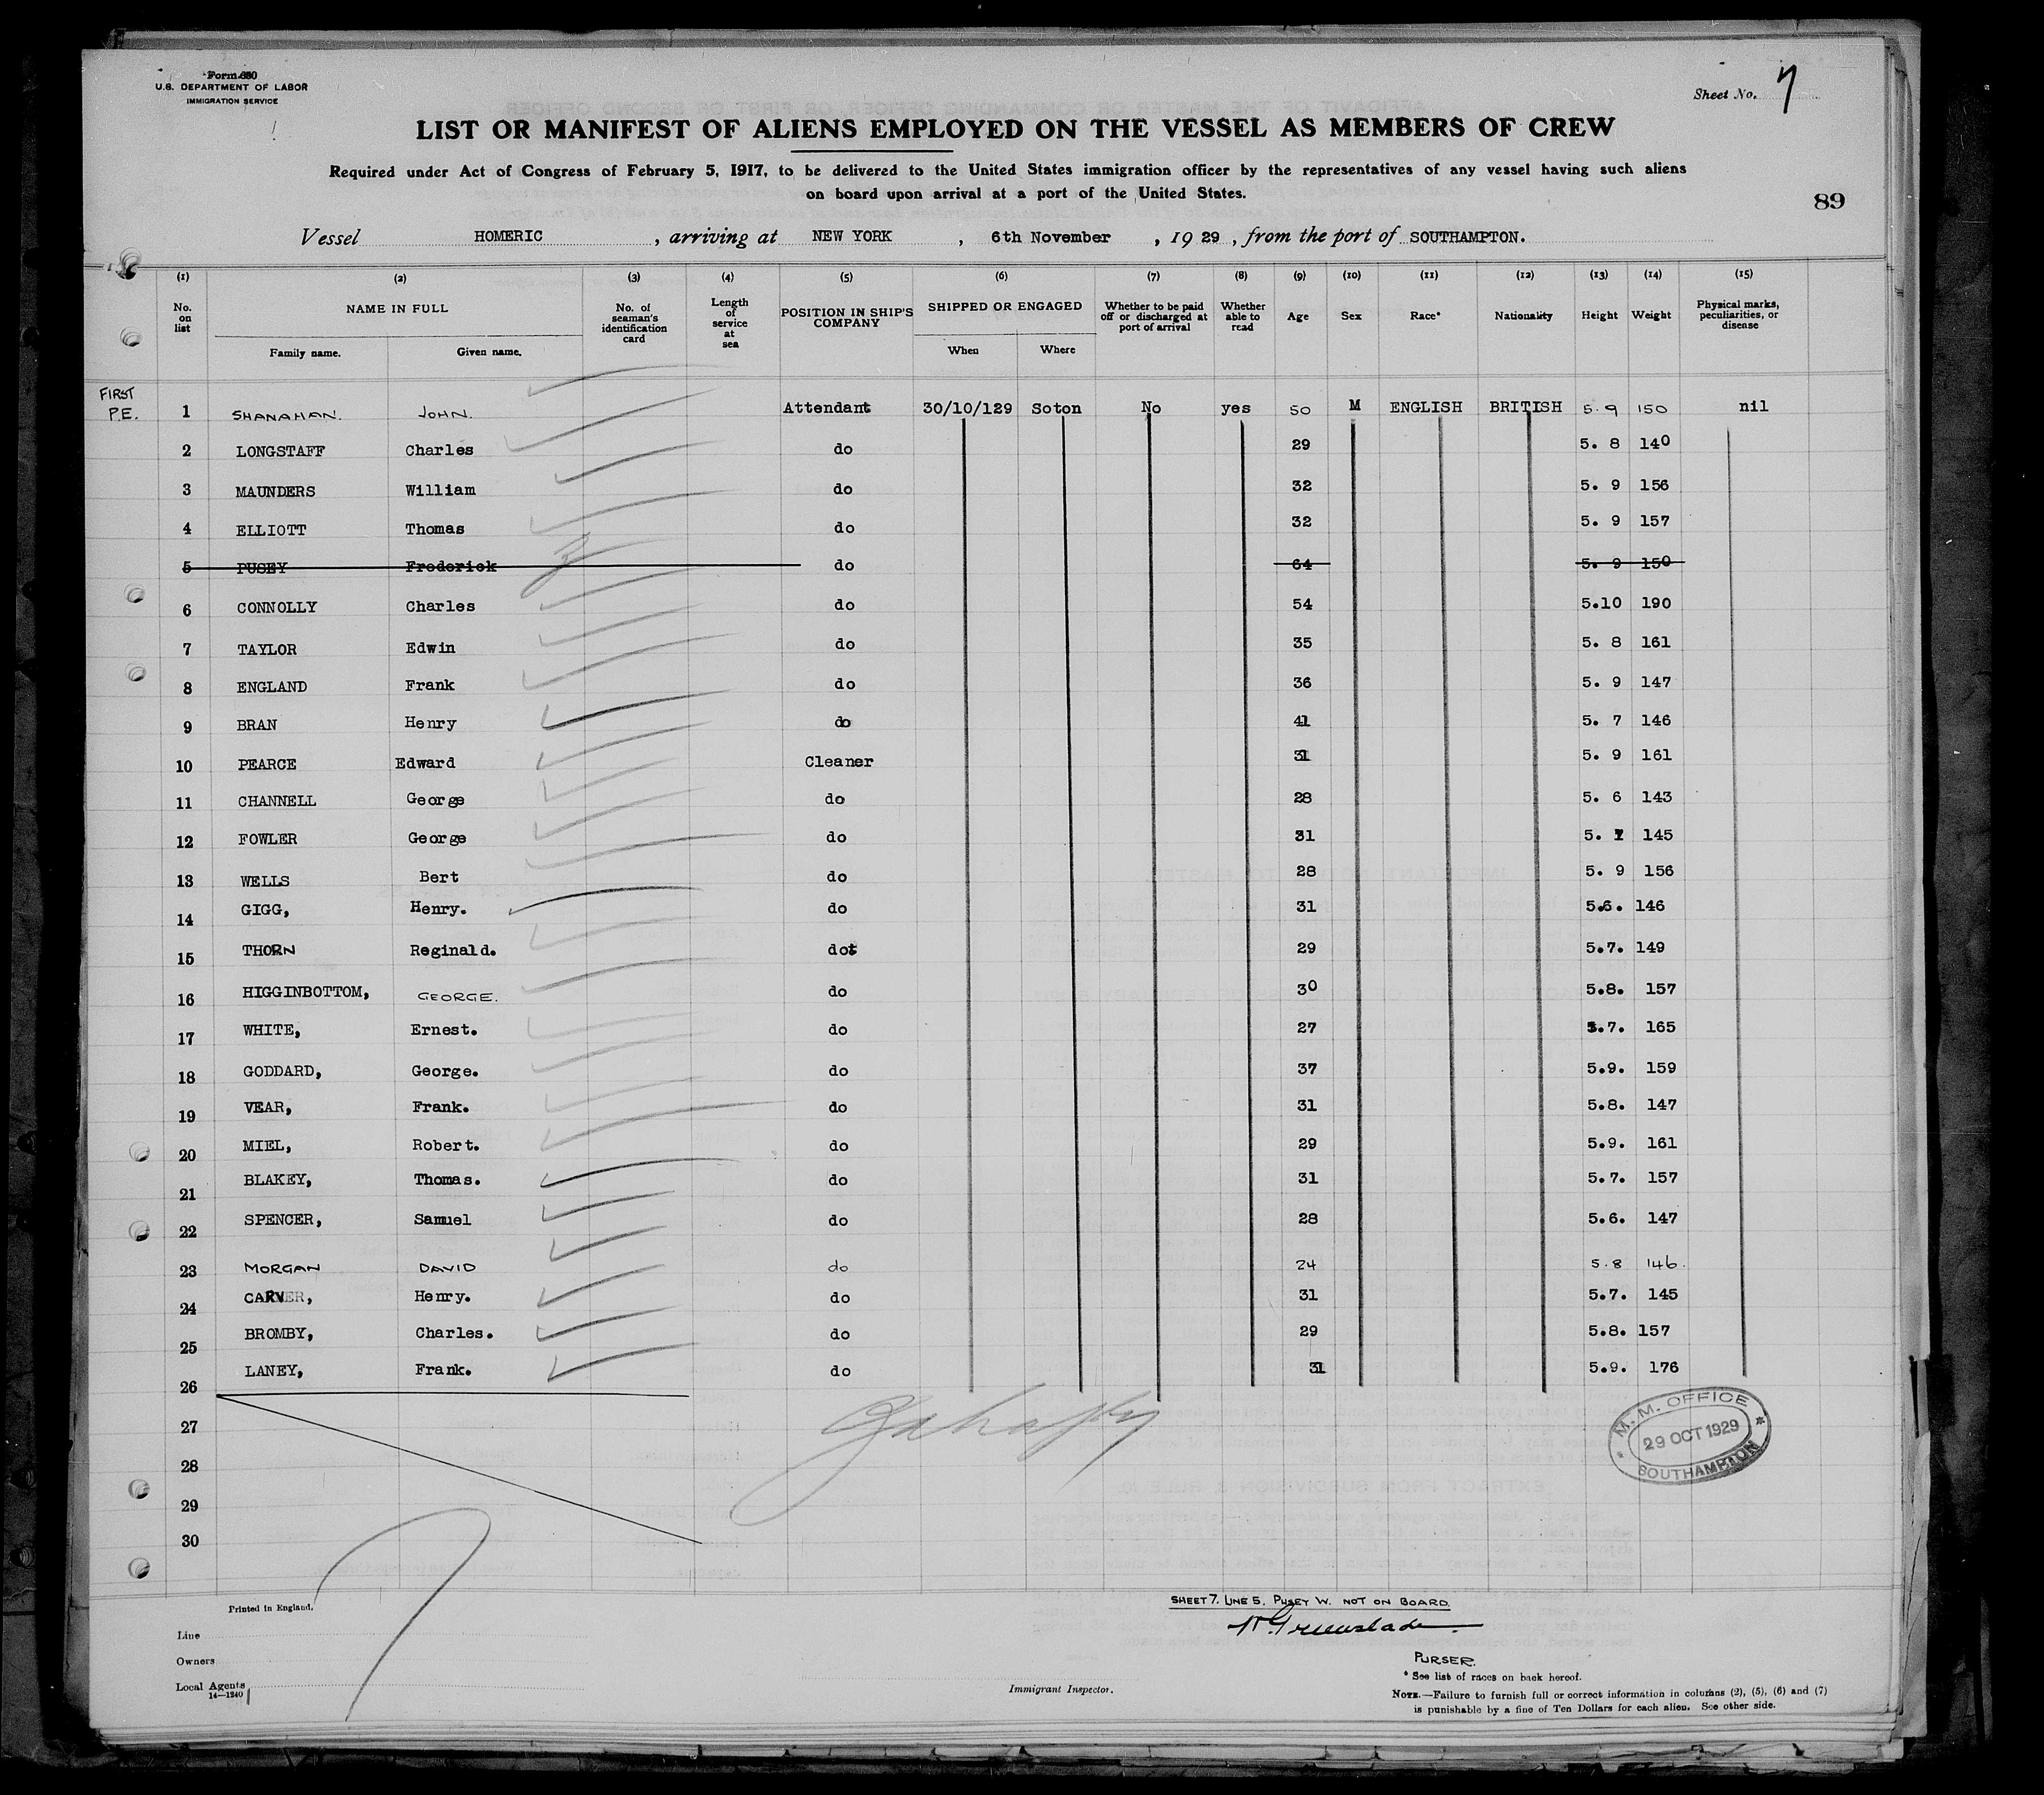 Form 680
U.S. DEPARTMENT OF LABOR
IMMIGRATION SERVICE
Sheet No. 7
LIST OR MANIFEST OF ALIENS EMPLOYED ON THE VESSEL AS MEMBERS OF CREW
Required under Act of Congress of February 5, 1917, to be delivered to the United States immigration officer by the representatives of any vessel having such aliens
on board upon arrival at a port of the United States.
89
Vessel HOMERIC, arriving at NEW YORK, 6th November, 1929, from the port of SOUTHAMPTON.
(1) (2) (3) (4) (5) (6) (7) (8) (9) (10) (11) (12) (13) (14) (15)
No. on list NAME IN FULL Family name. Given name. No. of seaman's identification card Length of service at sea POSITION IN SHIP'S COMPANY SHIPPED OR ENGAGED When Where Whether to be paid off or discharged at port of arrival Whether able to read Age Sex Race* Nationality Height Weight Physical marks, peculiarities, or disease
FIRST
P.E. 1 SHANAHAN. JOHN. Attendant 30/10/129 Soton No yes 50 M ENGLISH BRITISH 5.9 150 nil
2 LONGSTAFF Charles do 29 5. 8 140
3 MAUNDERS William do 32 5. 9 156
4 ELLIOTT Thomas do 32 5. 9 157
5 PUSEY Frederick do 64 5. 9 150
6 CONNOLLY Charles do 54 5.10 190
7 TAYLOR Edwin do 35 5. 8 161
8 ENGLAND Frank do 36 5. 9 147
9 BRAN Henry do 41 5. 7 146
10 PEARCE Edward Cleaner 31 5. 9 161
11 CHANNELL George do 28 5. 6 143
12 FOWLER George do 31 5. 7 145
13 WELLS Bert do 28 5. 9 156
14 GIGG, Henry. do 31 5.6. 146
15 THORN Reginald. dot 29 5.7. 149
16 HIGGINBOTTOM, GEORGE. do 30 5.8. 157
17 WHITE, Ernest. do 27 5.7. 165
18 GODDARD, George. do 37 5.9. 159
19 VEAR, Frank. do 31 5.8. 147
20 MIEL, Robert. do 29 5.9. 161
21 BLAKEY, Thomas. do 31 5.7. 157
22 SPENCER, Samuel do 28 5.6. 147
23 MORGAN DAVID do 24 5.8 146.
24 CARVER, Henry. do 31 5.7. 145
25 BROMBY, Charles. do 29 5.8. 157
26 LANEY, Frank. do 31 5.9. 176
27
28
29
30
M. M. OFFICE
29 OCT 1929
SOUTHAMPTON
7
Printed in England.
SHEET 7. LINE 5. PUSEY W. NOT ON BOARD.
Greenslade
PURSER.
Line
Owners
Local Agents
14—1240
Immigrant Inspector.
* See list of races on back hereof.
NOTE.—Failure to furnish full or correct information in columns (2), (5), (6) and (7)
is punishable by a fine of Ten Dollars for each alien. See other side.